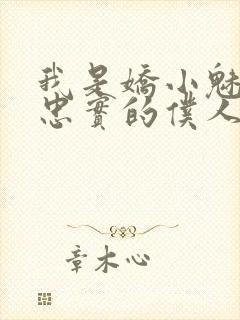 我是嬌小魅
忠實的僕人
章木心